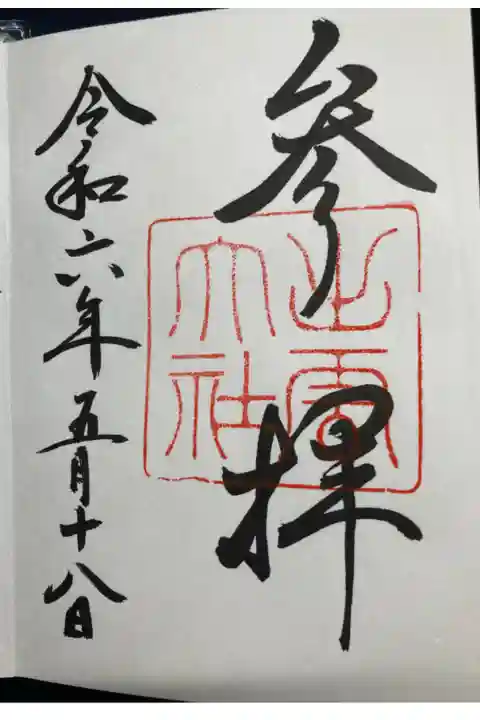 参拝
出雲大社
令和六年五月十八日